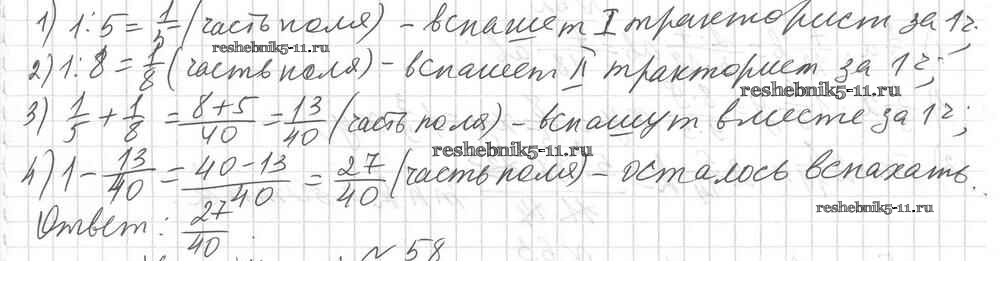 1) 1:5 = 1/5 (часть поля) – вспашет I тракторист за 1 ч.
reshebnik5-11.ru
2) 1:8 = 1/8 (часть поля) – вспашет II тракторист за 1 ч;
reshebnik5-11.ru
3) 1/5 + 1/8 = 8+5/40 = 13/40 (часть поля) – вспашут вместе за 1 ч;
reshebnik5-11.ru
4) 1 – 13/40 = 40-13/40 = 27/40 (часть поля) – осталось вспахать.
reshebnik5-11.ru
Ответ: 27/40.
№ 58